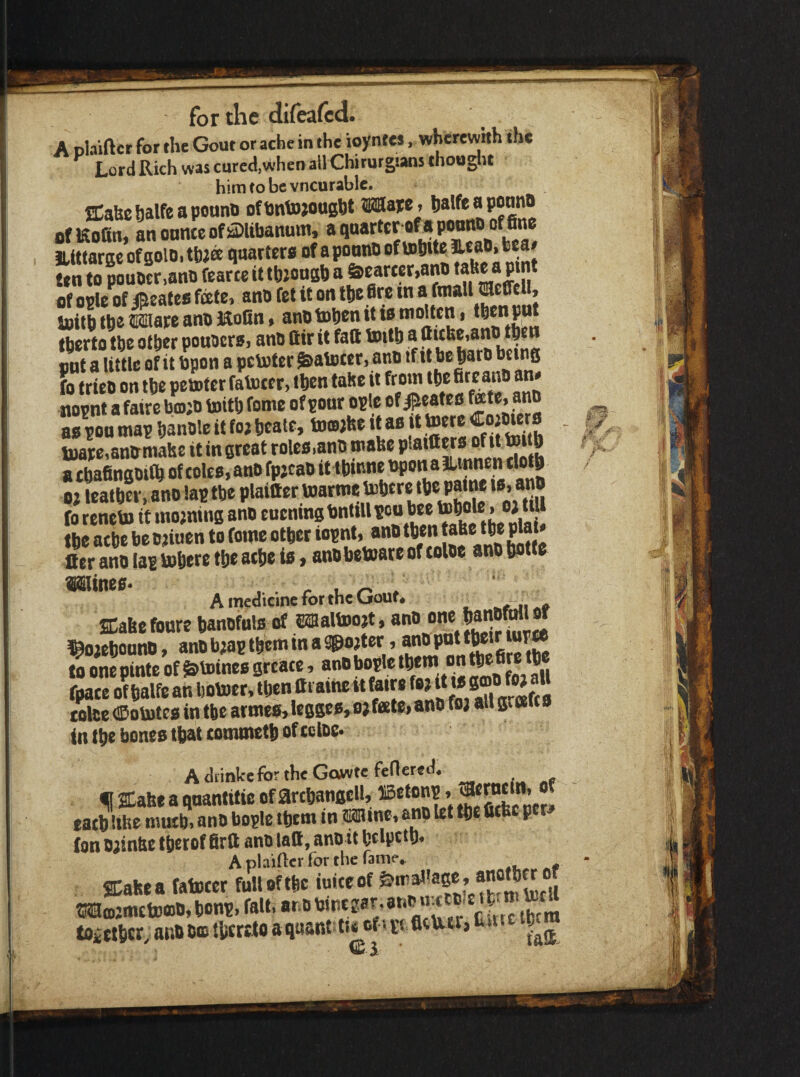 for the diseased.
A plaister for the Gout or ache in the ioyntes, wherewith the
Lord Rich was cured, when all Chirurgians thought
him to be vncurable.
Take halfe a pound of vnwrought Waxe, halfe a pound
of Rosin, an ounce of Olibanum, a quarter of a pound of fine
Littarge of gold, thrée quarters of a pound of white Lead, bea-
ten to pouder, and searce it through a Searcer, and take a pint
of oyle of Neates féete, and set it on the fire in a small Uessell,
with the Waxe and Rosin, and when it is molten, then put
therto the other pouders, and stir it fast with a sticke, and then
put a little of it vpon a pewter Sawcer, and if it be hard being
so tried on the pewter sawcer, then take it from the fire and an-
noynt a faire boord with some of your oyle of Neates féete, and
as you may handle it for heate, woorke it as it were Cordiers
waxe, and make it in great roles, and make plaisters of it with
a chafingdish of coles, and spread it thinne vpon a Linnen cloth
or leather, and lay the plaister warme where the paine is, and
so renew it morning and euening vntill you bee whole, or till
the ache be driuen to some other ioynt, and then take the plai-
ster and lay where the ache is, and beware of colde and hotte
Wines.
A medicine for the Gout.
Take foure handfuls of Walwort, and one handfull of
Horehound, and bray them in a Morter, and put their iuyce
to one pinte of Swines greace, and boyle them on the fire the
space of halfe an hower, then straine it faire for it is good for all
colde Gowtes in the armes, legges, or féete, and for all gréefes
in the bones that commeth of colde.
A drinke for the Gowte festered.
¶ Take a quantitie of Archangell, Betony, Veruein, of
each like much, and boyle them in Wine, and let the sicke per-
son drinke therof first and last, and it helpeth.
A plaister for the same.
Take a sawcer full of the iuice of Smallage, another of
Woormewood, hony, salt, and vinegar, and them well
together, and doo thereto a quantitie of flower, them
E3 fast